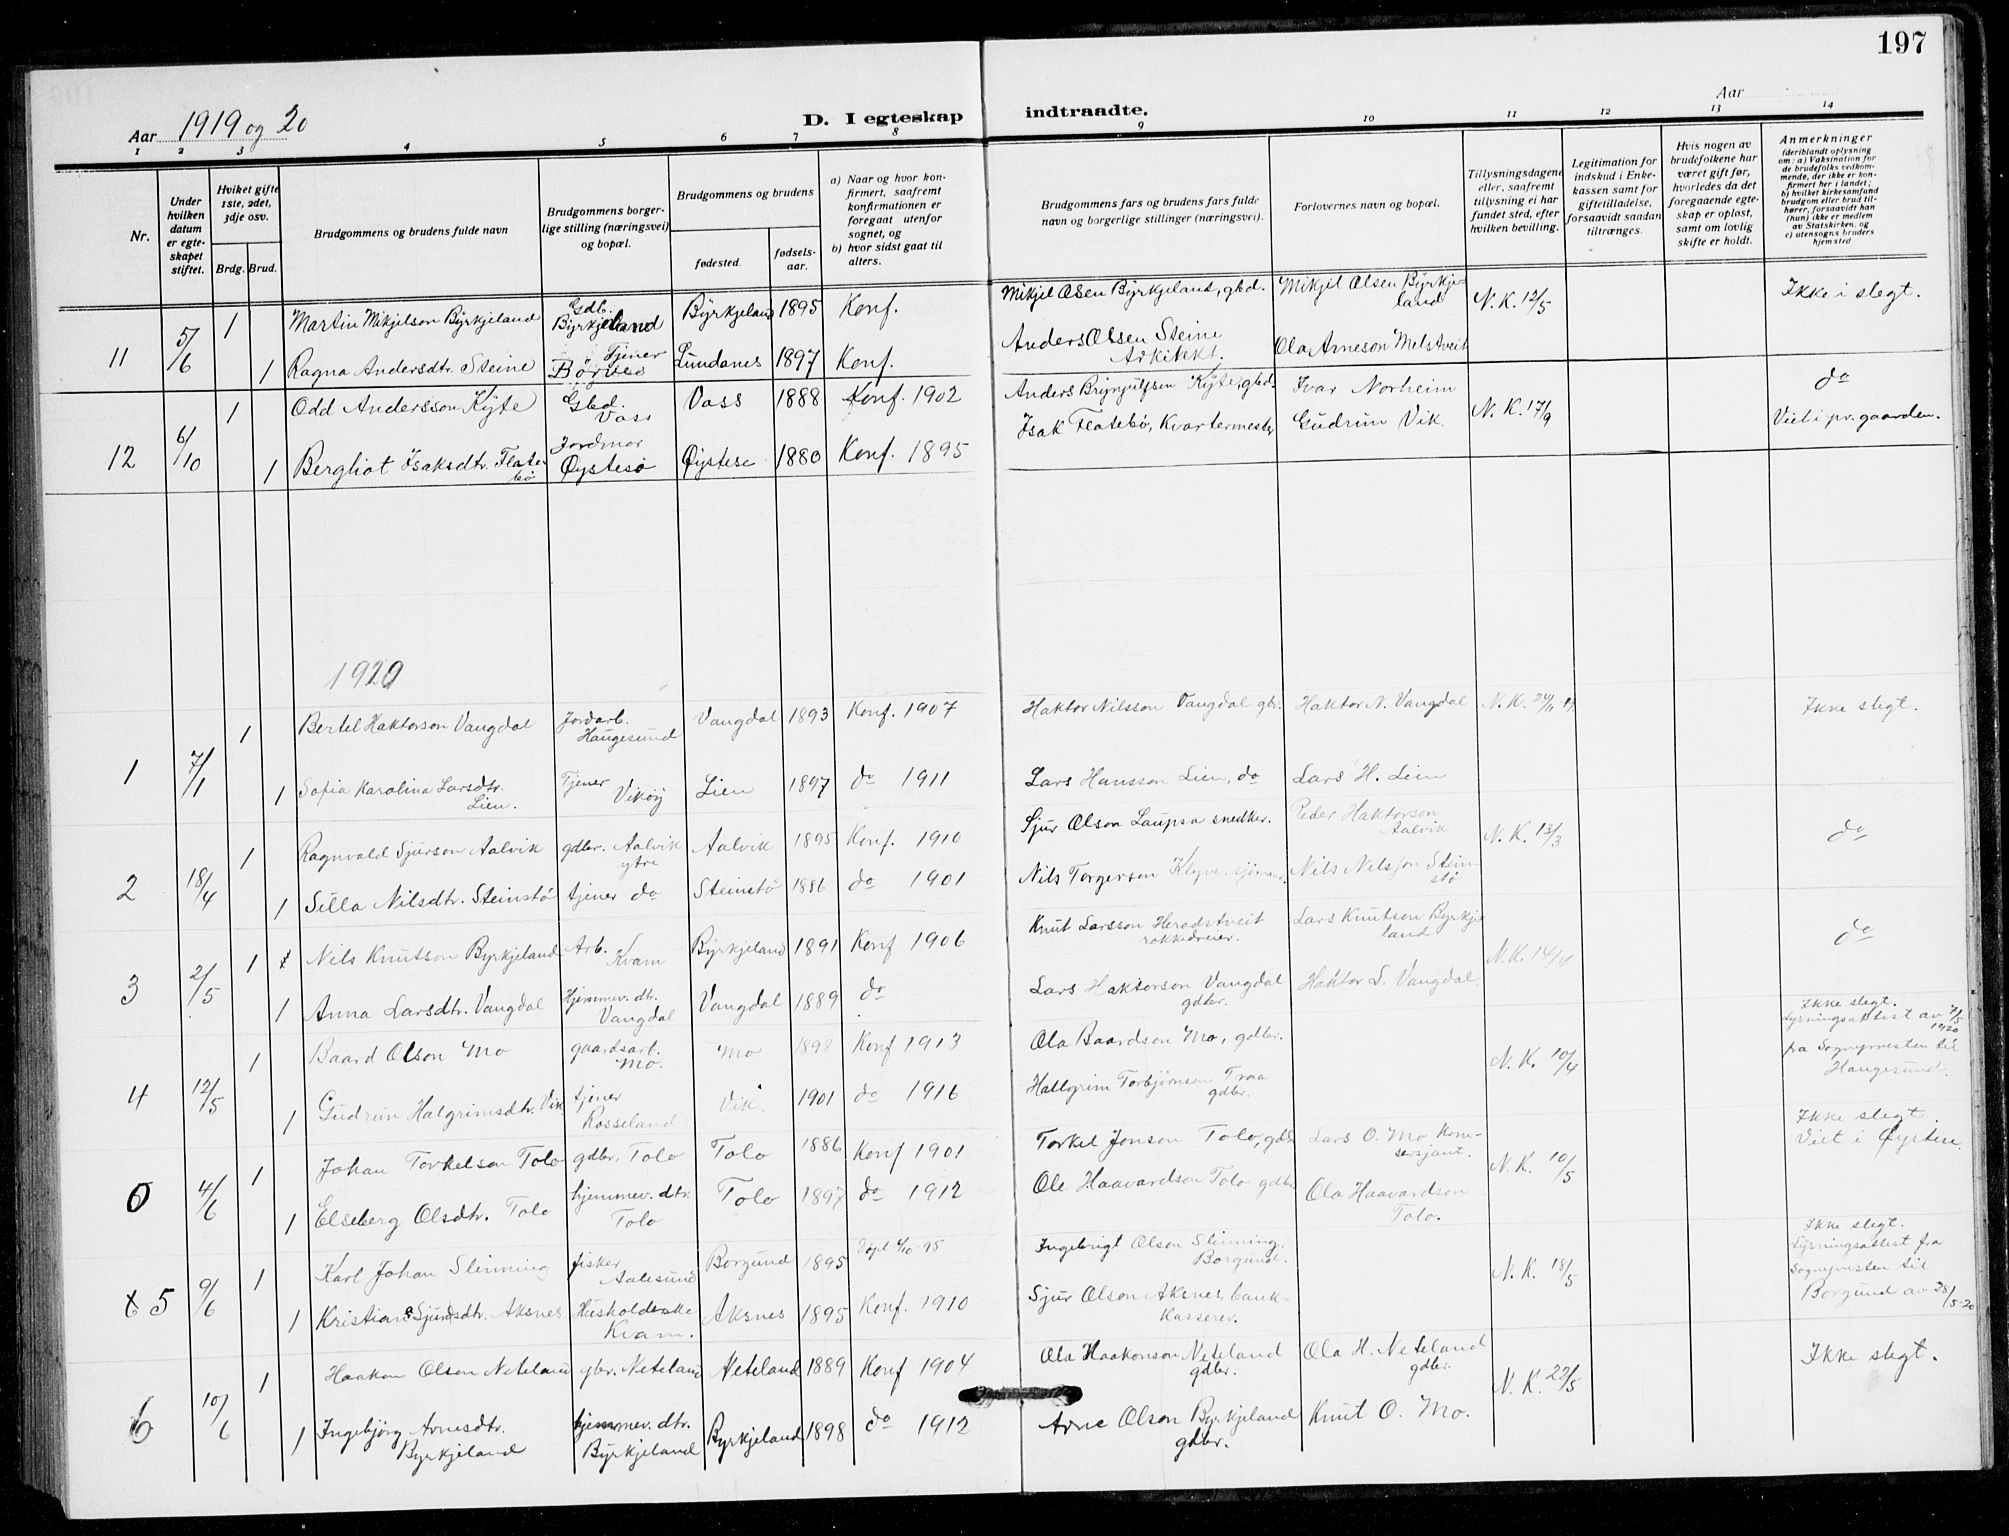 197
Aar 1919 og 20
D. I egteskap indtraadte.
Aar
1 2 3 4 5 6 7 8 9 10 11 12 13 14
Nr.
Under hvilken datum er egteskapet stiftet.
Hviket gifte 1ste, 2det, 3dje osv.
Brdg. Brud.
Brudgommens og brudens fulde navn
Brudgommens borgerlige stilling (næringsvei) og bopæl.
Brudgommens og brudens
fødested.
fødselsaar.
a) Naar og hvor konfirmert, saafremt konfirmationen er foregaat utenfor sognet, og
b) hvor sidst gaat til alters.
Brudgommens fars og brudens fars fulde navn og borgerlige stillinger (næringsvei).
Forlovernes navn og bopæl.
Tillysningsdagene eller, saafremt tillysning ei har fundet sted, efter hvilken bevilling.
Legitimation for indskud i Enkekassen samt for giftetilladelse, forsaavidt saadan tiltrænges.
Hvis nogen av brudefolkene har været gift før, hvorledes da det foregaaende egteskap er opløst, samt om lovlig skifte er holdt.
Anmerkninger (deriblandt oplysning om: a) Vaksination for de brudefolks vedkommende, der ikke er konfirmert her i landet; b) hvilket kirkesamfund brudgom eller brud tilhører, forsaavidt han (hun) ikke er medlem av Statskirken, og c) utensogns bruders hjemsted
11 5/6 1 Martin Mikjelson Byrkjeland Gdb. Byrkjeland Byrkjeland 1895 Konf. Mikjel Olsen Byrkjeland, gbd. Mikjel Olsen Byrkjeland N. K. 12/5 Ikke i slegt.
1 Ragna Andersdtr. Steine Tjener Lundanes 1897 Konf. Anders Olsen Steine Arkitekt. Ola Arneson Melstveit
12 6/10 1 Odd Andersson Kyte Gbd. Voss Voss 1888 Konf. 1902 Anders Brynjulfsen Kyte, gbd. Ivar Norheim N. K. 17/9 do
1 Bergliot Isaksdtr. Flatebø Jordmor Øystesø Øystese 1880 Konf. 1895 Isak Flatebø, Kvartermester Gudrun Vik. Viet i pr. gaarden.
1920
1 7/1 1 Bertel Haktorson Vangdal Jordarb. Haugesund Vangdal 1893 Konf. 1907 Haktor Nilsson Vangdal gbr. Haktor N. Vangdal N. K. Ikke slegt.
1 Sofia Karolina Larsdtr. Lien. Tjener Vikøy Lien 1897 do 1911 Lars Hansson Lien, do Lars H. Lien
2 18/4 1 Ragnvald Sjurson Aalvik gdbr. Aalvik ytre Aalvik 1895 Konf. 1910 Sjur Olson Laupsa snedker. Peder Haktorson Aalvik N. K. 13/3 do
1 Silla Nilsdtr. Steinstø tjener do Steinstø 1886 do 1901 Nils Torgerson Nils Nilsson Steinstø
3 2/5 1 Nils Knutson Byrkjeland Arb. Kvam Byrkjeland 1891 Konf 1906 Knut Larsson Heradstveit rokkedreier. Lars Knutson Byrkjeland N. K. do
1 Anna Larsdtr. Vangdal Hjemmev. dtr. Vangdal Vangdal 1889 do Lars Haktorson Vangdal gdbr. Haktor L. Vangdal.
4 12/5 1 Baard Olson Mo gaardsarb. Mo. Mo 1898 Konf 1913 Ola Baardson Mo, gdbr. N. K. 10/4 Ikke slegt. Lysningsattest av 7/5 1920 fra Sognepresten til Haugesund.
1 Gudrun Halgrimsdtr. Vik tjener Rosseland Vik. 1901 do 1916 Hallgrim Torbjørnson Traa gdbr.
4/6 1 Johan Torkelson Tolo gdbr. Tolo Tolo 1886 Konf 1901 Torkel Jonson Tolo, gdbr Lars O. Mo N. K. 10/5 Ikke slegt. Viet i Øystese
1 Elseberg Olsdtr. Tolo hjemmev. dtr. Tolo Tolo 1897 do 1912 Ole Haavardson Tolo gdbr. Ola Haavardson Tolo.
5 9/6 1 Karl Johan Slinning fisker Aalesund Borgund 1895 Døpt 4/10-95 Ingebrigt Olson Slinning, Borgund. N. K. 18/5 Ikke slegt. Lysningsattest fra Sognepresten til Borgund av 28/5-20
1 Kristiane Sjursdtr. Aksnes Kvam. Aksnes 1895 Konf. 1910 Sjur Olson Aksnes, bankkasserer.
6 10/6 1 Haakon Olson Neteland gbr. Neteland Neteland 1889 Konf 1904 Ola Haakonson Neteland gdbr. Ola H. Neteland gdbr. N. K. 22/5 Ikke slegt.
1 Ingebjørg Arnesdtr. Byrkjeland hjemmev. dtr. Byrkjeland Byrkjeland 1898 do 1912 Arne Olson Byrkjeland gdbr. Knut O. Mo.